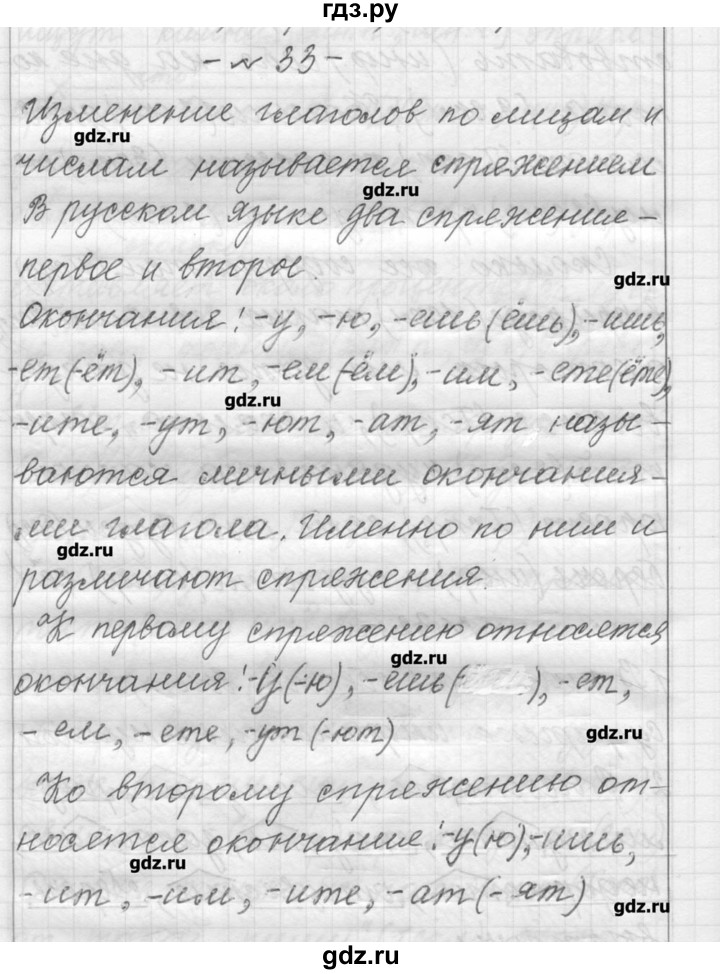 гдз.ру
- № 33 -
Изменение глаголов по лицам и
gdz.ru
числам называется спряжением
gdz.ru
В русском языке два спряжение -
первое и второе.
gdz.ru
Окончания: -у, -ю, -ешь (ёшь), -ишь,
-ет (-ёт), -ит, -ем (-ём), -им, -ете (ёте),
gdz.ru
-ите, -ут, -ют, -ат, -ят назы-
ваются личными окончания-
ми глагола. Именно по ним и
gdz.ru
различают спряжения.
К первому спряжению относятся
gdz.ru
окончания: -у (-ю), -ешь ( ), -ет,
-ем, -ете, -ут (-ют)
gdz.ru
Ко второму спряжению от-
носятся окончания: -у (ю), -ишь,
gdz.ru
-ит, -им, -ите, -ат (-ят)
gdz.ru
gdz.ru